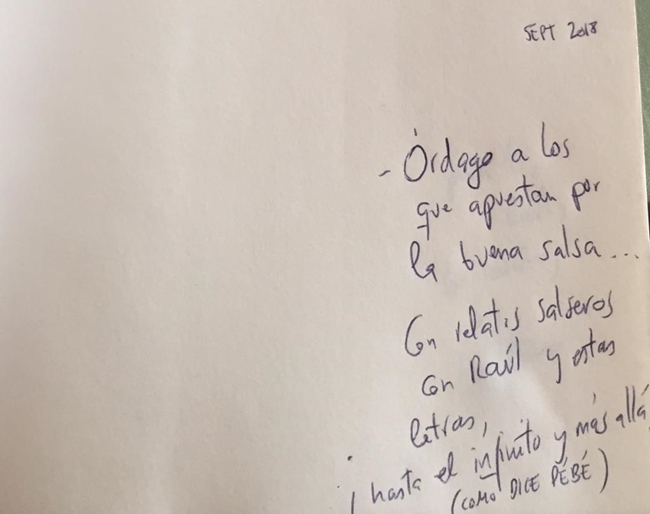 SEPT 2018
- Órdago a los
que apuestan por
la buena salsa...
Con relatos salseros
con Raúl y estas
letras,
¡ hasta el infinito y más allá
(COMO DICE PÉBÉ)